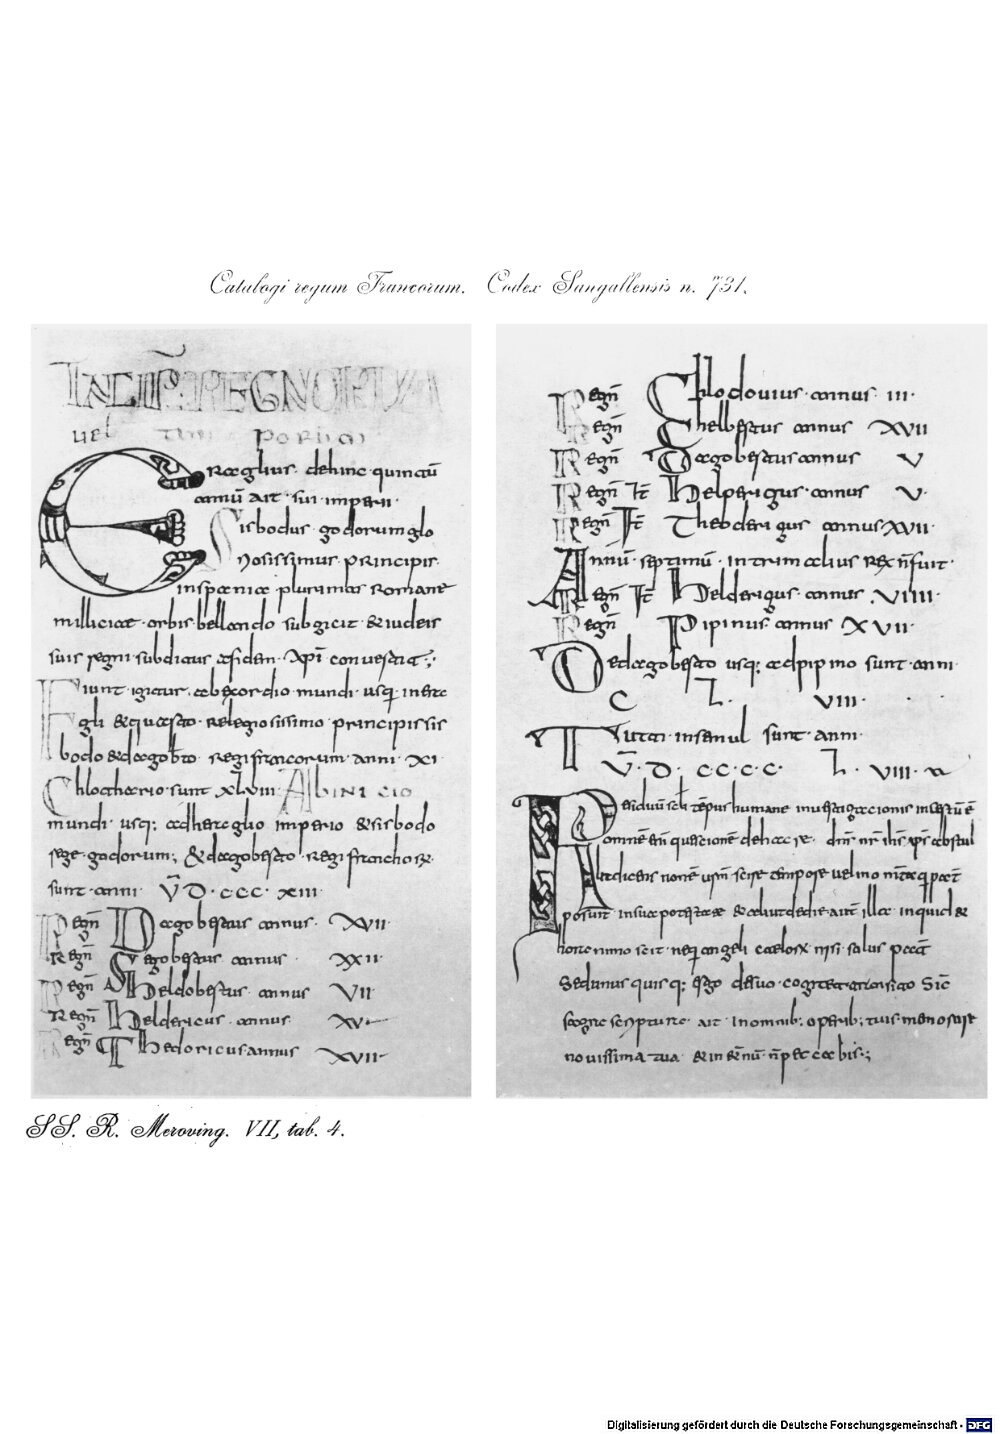 Catalogi regum Francorum. Codex Sangallensis n. 731.
INCIP̄ REGNORUM
uel
Eraeglius · dehinc quintū
annū ait · sui imperii ·
Sisbodus · godorum glo
riosissimus principis
in spaniae plurimas romane
milliciae · orbis bellando subgicit · & iudeis
suis regni · subditus at fidem · xp̄i convertit ;
Fiunt · igitur · ab exordio mundi · usq; in erac
gli & quarto · relegiosissimo principis sis
bodo & dagobto regi francorum · anni · XI ·
Chlothario · sunt XLVIII · Ab INICIO
mundi · usq; ad heraeglio imperio & sisbodo
rege · godorum ; & dagoberto · regi franchorum
sunt · anni · V̄ D · CCC · XIII ·
Regn̄ Dagobertus annus · XVII ·
Regn̄ Segobertus annus · XXII ·
Regn̄ heldobertus · annus VII ·
Regn̄ heldericus · annus · XV
Regn̄ Thedoricus annus XVII ·
Regn̄ Chlodouius · annus · III ·
Regn̄ Chelbertus annus XVII
Regn̄ Dagobertus annus V
Regn̄ It̄ helperigus · annus V ·
Regn̄ It̄ Thederigus annus XVII ·
Annū · septimū · intrim alius rex n̄ fuit ·
Regn̄ It̄ helderigus · annus · VIIII ·
Regn̄ Pipinus annus XVII ·
De dagoberto usq; ad pippino sunt · anni ·
C L · VIII ·
Tuta · in semul sunt · anni ·
V̄ · D · C · C · C · C · L · VIII ·
Residuū tēpus humane inuestigacionis
omnē enī dn̄r nr̄ ih̄s xp̄s
posuit · in sua potestate
hore nimo scit · neq; angeli caelorum nisi · solus
Sed unus quisq; ergo de suo · cogitet transito Sic
scripture · ait · In omnib; operib; tuis memorare
nouissima tua & in et̄nū · n̄ peccabis ;
SS. R. Meroving. VII, tab. 4.
Digitalisierung gefördert durch die Deutsche Forschungsgemeinschaft - DFG